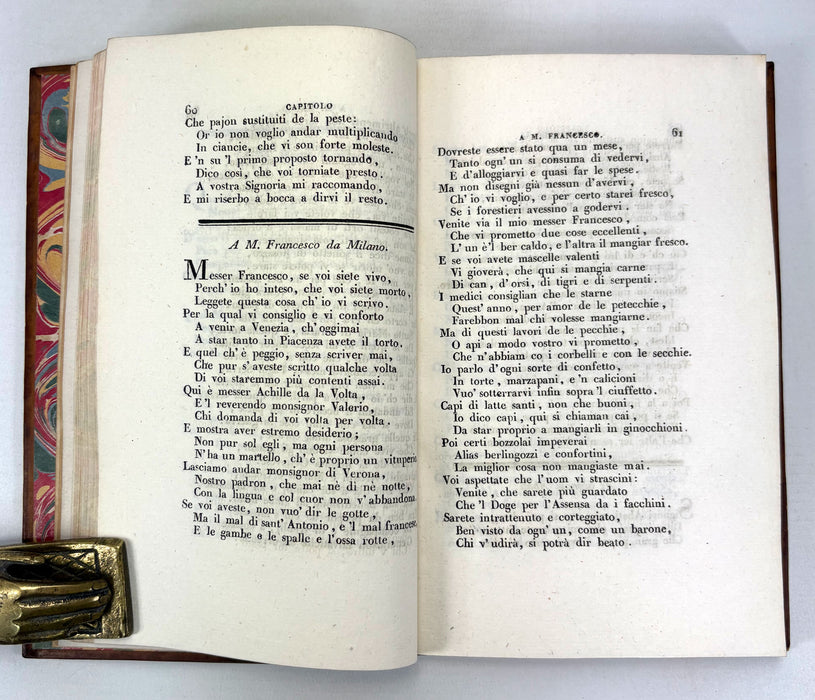 60
CAPITOLO
Che pajon sustituiti de la peste:
Or io non voglio andar multiplicando
In ciancie, che vi son forte moleste.
E'n su'l primo proposto tornando,
Dico così, che voi torniate presto.
A vostra Signoria mi raccomando,
E mi riserbo a bocca a dirvi il resto.
A M. Francesco da Milano.
Messer Francesco, se voi siete vivo,
Perch'io ho inteso, che voi siete morto,
Leggete questa cosa ch'io vi scrivo.
Per la qual vi consiglio e vi conforto
A venir a Venezia, ch'oggimai
A star tanto in Piacenza avete il torto.
E quel ch'è peggio, senza scriver mai,
Che pur s'aveste scritto qualche volta
Di voi staremmo più contenti assai.
Qui è messer Achille da la Volta,
E'l reverendo monsignor Valerio,
Chi domanda di voi volta per volta.
E mostra aver estremo desiderio;
Non pur sol egli, ma ogni persona
N'ha un martello, ch'è proprio un vituperio
Lasciamo andar monsignor di Verona,
Nostro padron, che mai nè dì nè notte,
Con la lingua e col cuor non v'abbandona.
Se voi aveste, non vuo' dir le gotte,
Ma il mal di sant'Antonio, e'l mal francese,
E le gambe e le spalle e l'ossa rotte,
A M. FRANCESCO.
61
Dovreste essere stato qua un mese,
Tanto ogn'un si consuma di vedervi,
E d'alloggiarvi e quasi far le spese.
Ma non disegni già nessun d'avervi,
Ch'io vi voglio, e per certo starei fresco,
Se i forestieri avessino a godervi.
Venite via il mio messer Francesco,
Che vi prometto due cose eccellenti,
L'un è'l ber caldo, e l'altra il mangiar fresco.
E se voi avete mascelle valenti
Vi gioverà, che qui si mangia carne
Di can, d'orsi, di tigri e di serpenti.
I medici consiglian che le starne
Quest'anno, per amor de le petecchie,
Farebbon mal chi volesse mangiarne.
Ma di questi lavori de le pecchie,
O api a modo vostro vi prometto,
Che n'abbiam co i corbelli e con le secchie.
Io parlo d'ogni sorte di confetto,
In torte, marzapani, e'n calicioni
Vuo' sotterrarvi infin sopra'l ciuffetto.
Capi di latte santi, non che buoni,
Io dico capi, qui si chiaman cai,
Da star proprio a mangiarli in ginocchioni.
Poi certi bozzolai impeverai
Alias berlingozzi e confortini,
La miglior cosa non mangiaste mai.
Voi aspettate che l'uom vi strascini:
Venite, che sarete più guardato
Che'l Doge per l'Assensa da i facchini.
Sarete intrattenuto e corteggiato,
Ben visto da ogn'un, come un barone,
Chi v'udirà, si potrà dir beato.